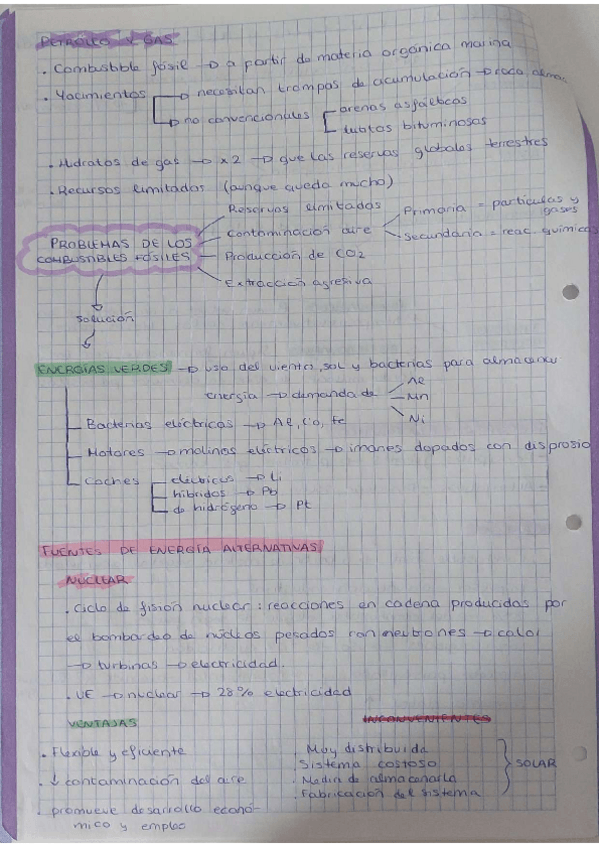 PETRÓLEO Y GAS
. Combustible fósil → a partir de materia orgánica marina
. Yacimientos → necesitan trampas de acumulación → roca
→ no convencionales
arenas asfálticas
lutitas bituminosas
. Hidratos de gas → x2 → que las reservas globales terrestres
. Recursos limitados (aunque queda mucho)
PROBLEMAS DE LOS COMBUSTIBLES FÓSILES
Reservas limitadas
Contaminación aire
Primaria = partículas y gases
Secundaria = reac. químicas
Producción de CO2
Extracción agresiva
solución
ENERGÍAS VERDES → uso del viento, sol y bacterias para almacenar
energía → demanda de
Mn
Ni
Baterias eléctricas → Al, Co, Fe
Motores → molinos eléctricos → imanes dopados con disprosio
Coches
eléctricos → Li
híbridos → Pb
de hidrógeno → Pt
FUENTES DE ENERGÍA ALTERNATIVAS
NUCLEAR
. Ciclo de fisión nuclear : reacciones en cadena producidas por
el bombardeo de núcleos pesados con neutrones → calor
→ turbinas → electricidad.
. UE → nuclear → 28% electricidad
VENTAJAS
. Flexible y eficiente
. ↓ contaminación del aire
. promueve desarrollo econó-
mico y empleo
INCONVENIENTES
. Muy distribuida
. Sistema costoso
. Medio de almacenarla
. Fabricación del sistema
SOLAR